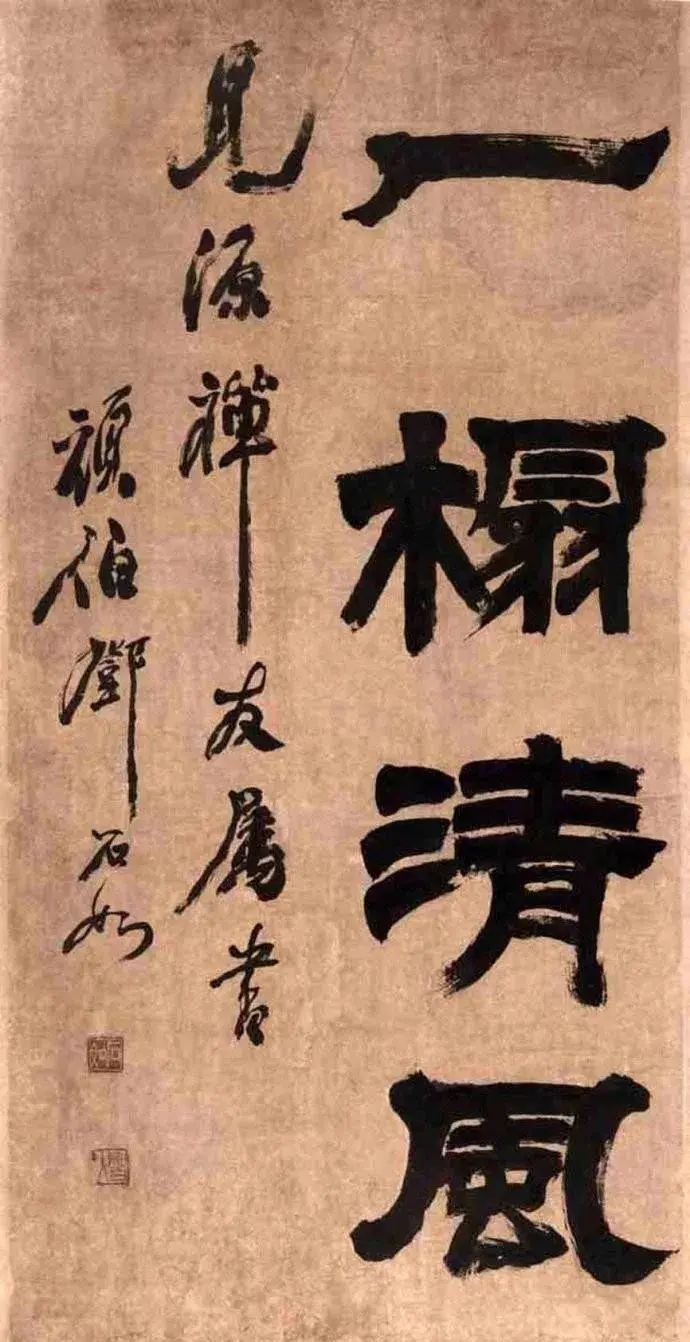 一榻清風
見源禪友属書
頑伯鄧石如